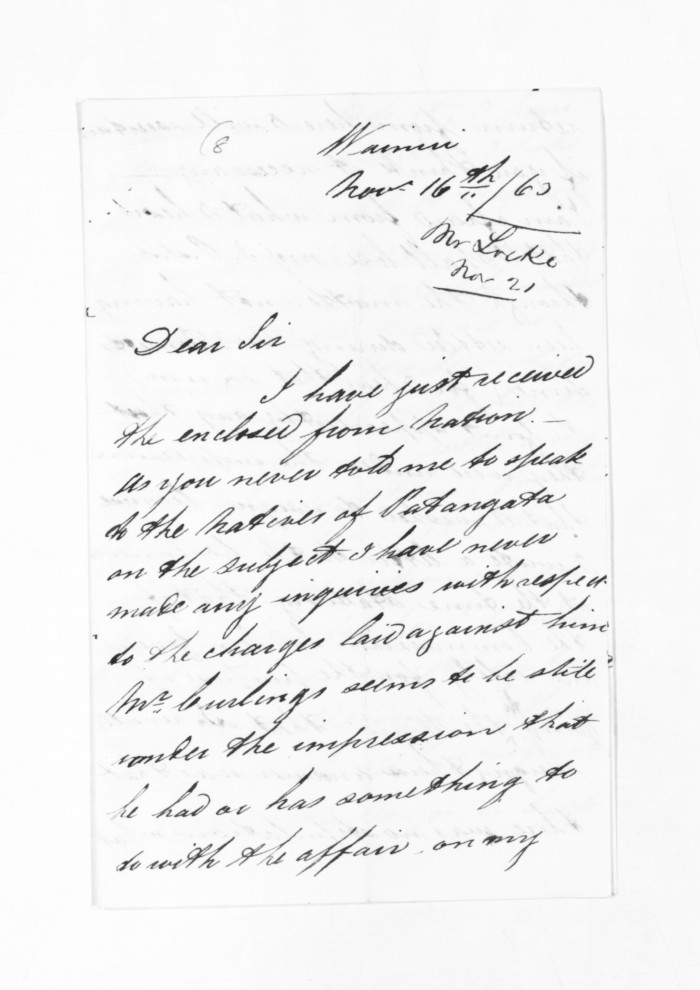 (8
Nov. 16th /63
Mr Locke
Nov 21
Dear Sir
I have just received
the enclosed from Nation. —
as you never told me to speak
to the Natives of Patangata
on the subject I have never
made any inquiries with respect
to the charges laid against him
Mr. Curlings seems to be still
under the impression that
he had or has something to
do with the affair - on my